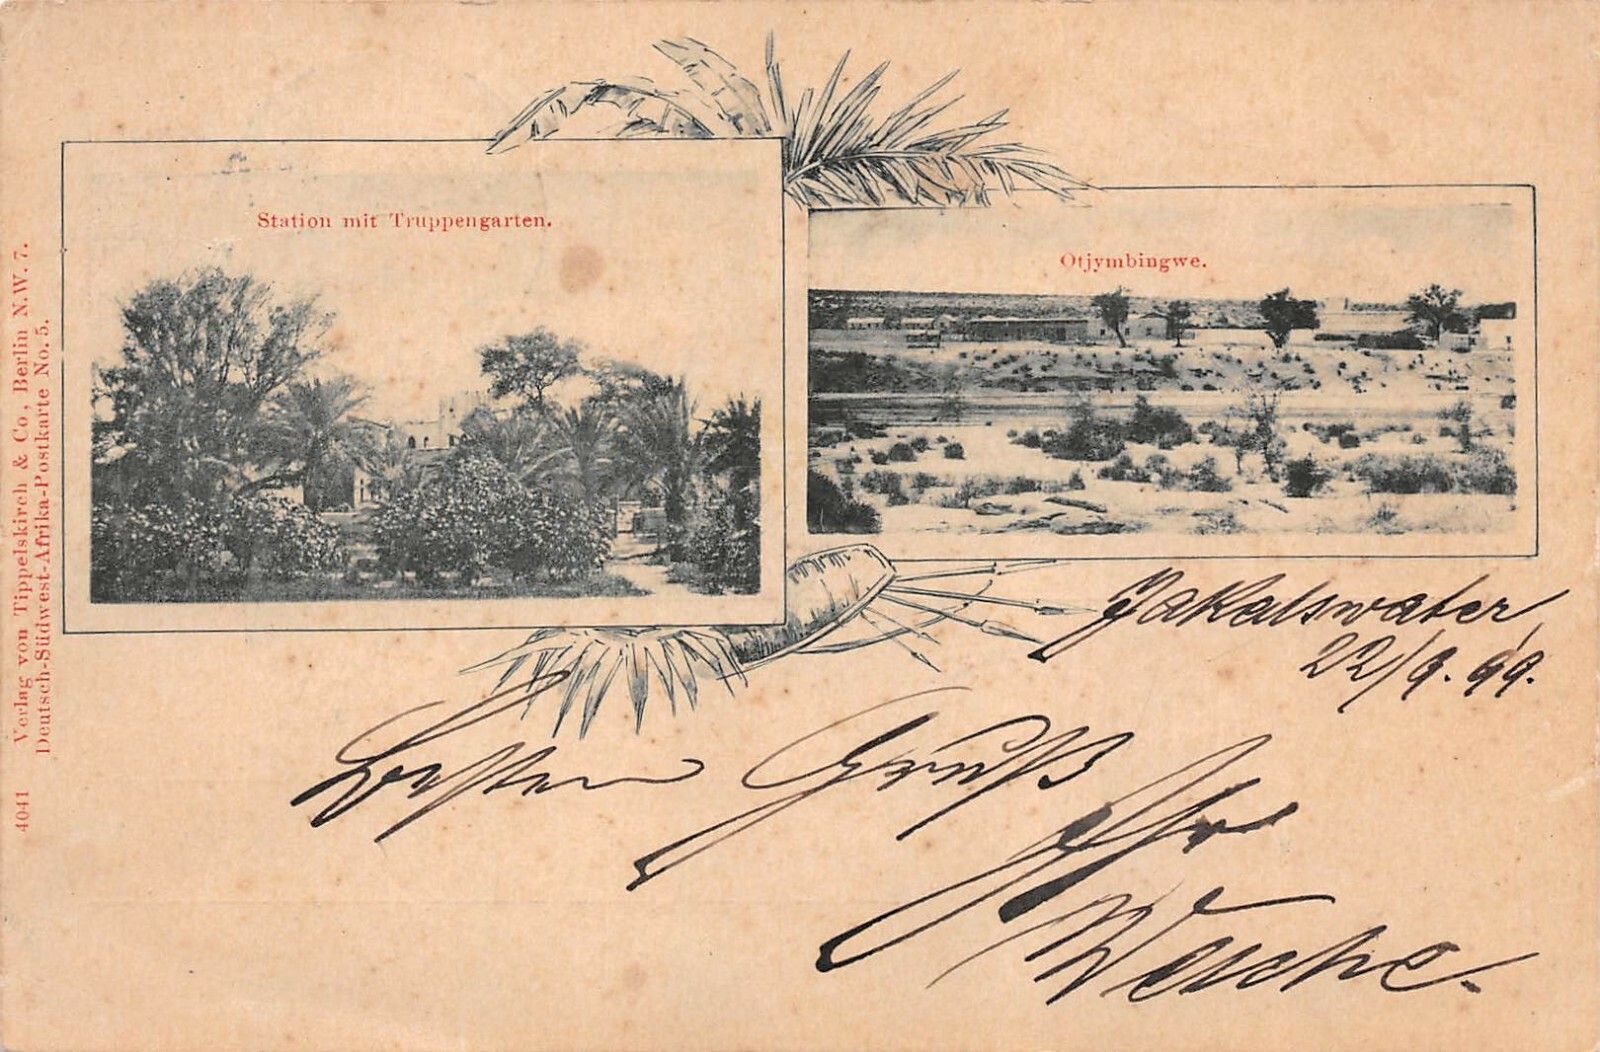 Station mit Truppengarten.
Otjymbingwe.
Verlag von Tippelskirch & Co., Berlin N.W. 7.
Deutsch-Südwest-Afrika-Postkarte No. 5.
4041
Jakalswater
22/9.99.
Besten Gruß
Ihr